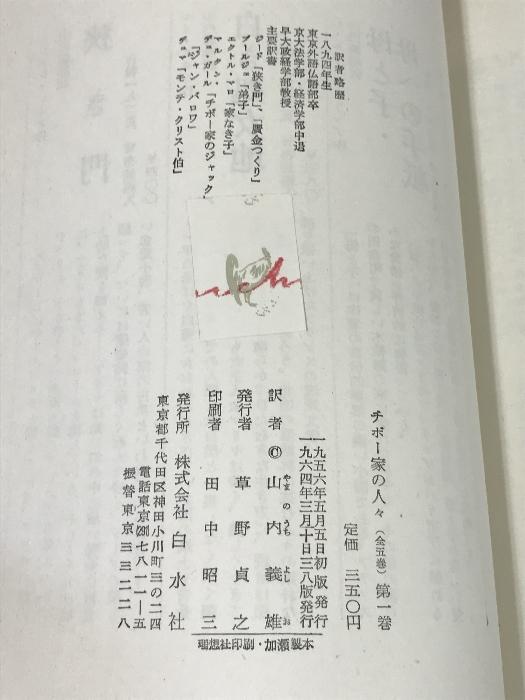 訳者略歴
一八九四年生
東京外語仏語部卒
京大法学部・経済学部中退
早大政経学部教授
主要訳書
ジード「狭き門」、「贋金つくり」
ブールジェ「弟子」
エクトル・マロ「家なき子」
マルタン・
デュ・ガール「チボー家のジャック」
「ジャン・バロワ」
デュマ「モンテ・クリスト伯」
チボー家の人々（全五巻）第一巻
定価 三五〇円
一九五六年五月五日初版発行
一九六四年三月十日三八版発行
訳者 © 山内義雄
やまのうち よしお
発行者 草野貞之
印刷者 田中昭三
発行所 株式会社 白水社
東京都千代田区神田小川町三の二四
電話東京(291)七八一一―五
振替東京三三二二八
理想社印刷・加瀬製本